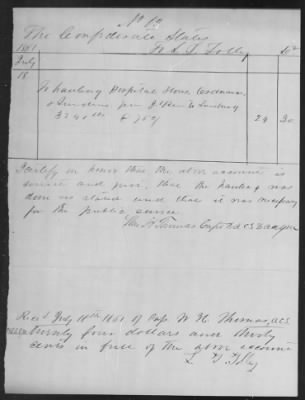 No 19
The Confederate States
1861 To L. T. Dr
July
18
To hauling Hospital Stores
& Sundries from to
3240 lbs @ 75¢ 24 30
I certify on honor that the above account is
correct and just, that the hauling was
done as stated and that it was necessary
for the public service
Wm H Thomas Capt & A.C.S.
Recd July 18th 1861 of Capt. W. H. Thomas, ACS
twenty four dollars and thirty
cents in full of the above account
L. T.